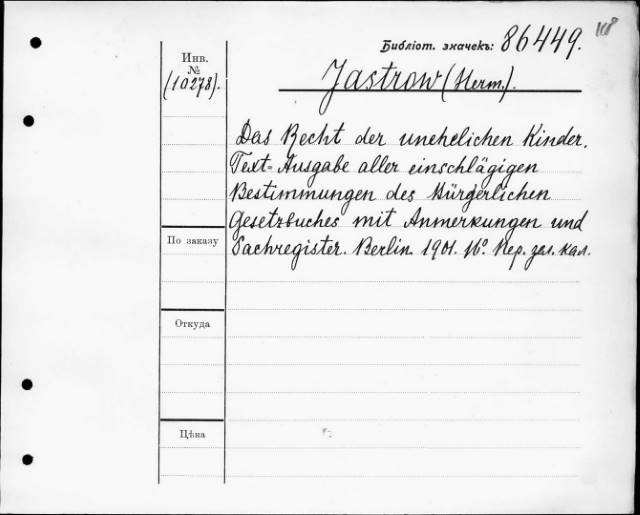 108
Библіот. значекъ: 86449.
Инв.
№
(10278).
Jastrow (Herm.).
Das Recht der unehelichen Kinder.
Text-Ausgabe aller einschlägigen
Bestimmungen des Bürgerlichen
Gesetzbuches mit Anmerkungen und
Sachregister. Berlin. 1901. 16º. Пер. зел. кал.
По заказу
Откуда
Цѣна